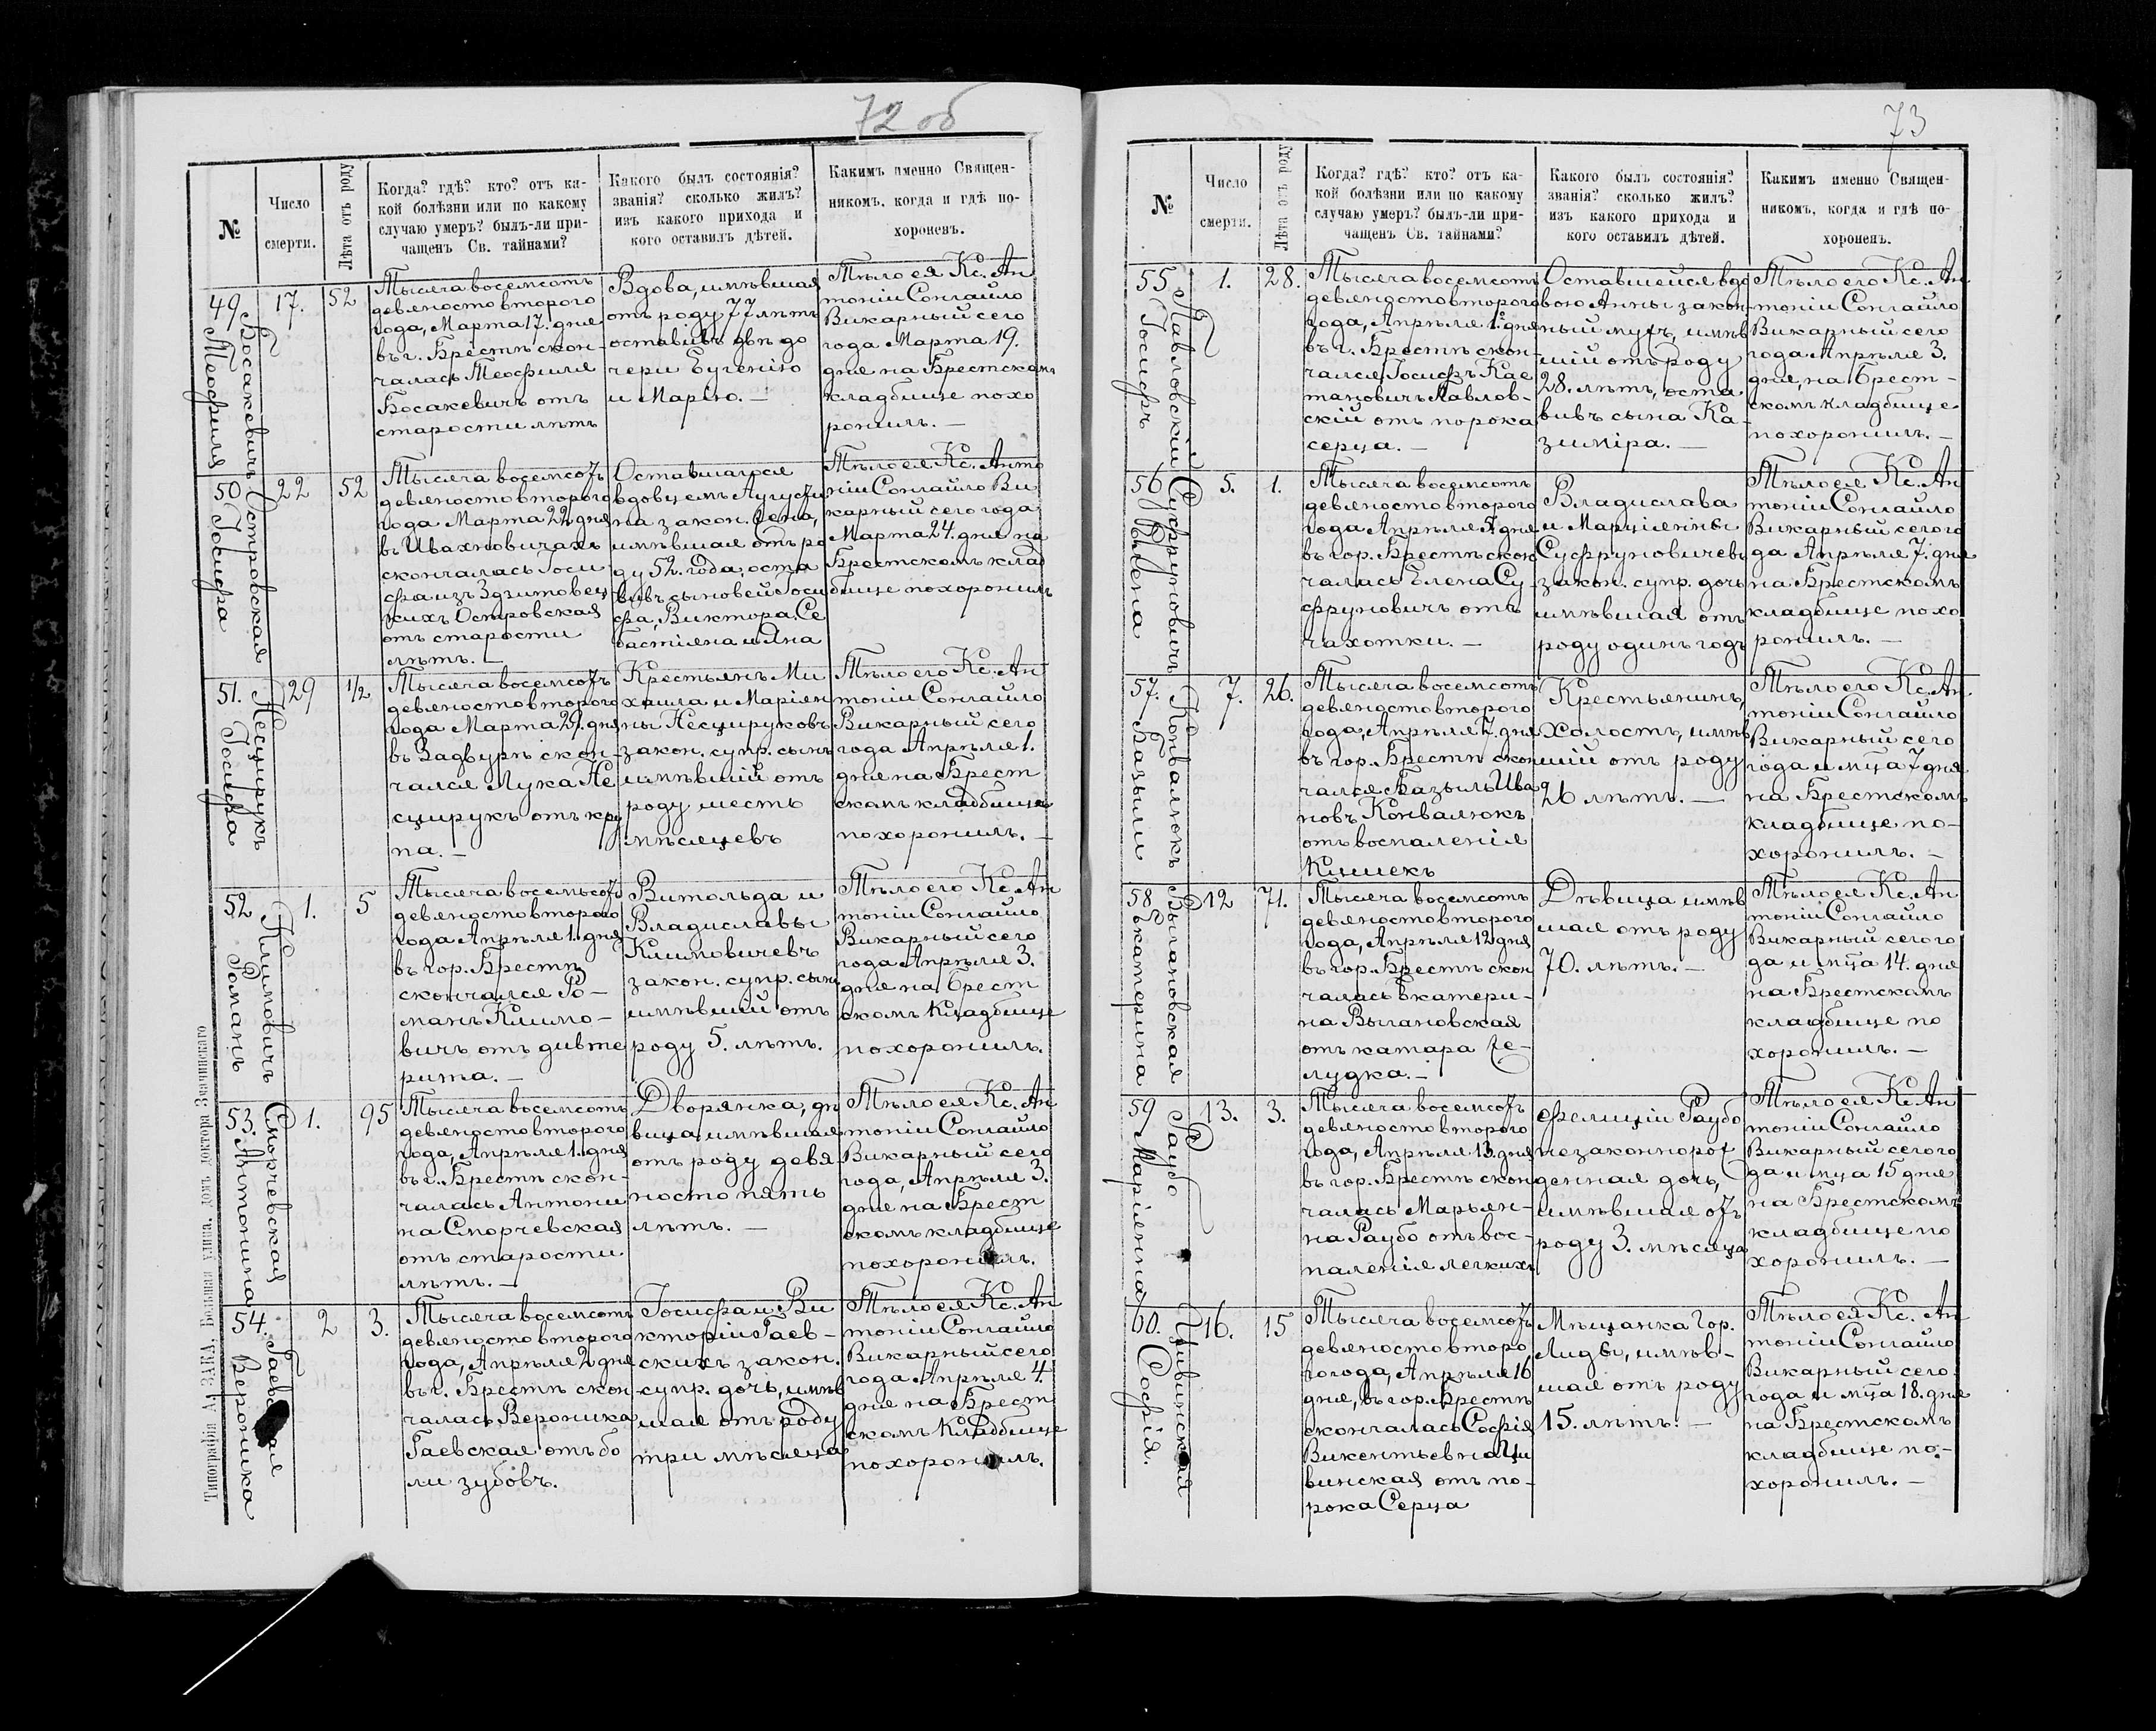 72 об
№
Число
смерти.
Лѣта отъ роду
Когда? гдѣ? кто? отъ ка-
кой болѣзни или по какому
случаю умеръ? былъ-ли при-
чащенъ Св. тайнами?
Какого былъ состоянія?
званія? сколько жилъ?
изъ какого прихода и
кого оставилъ дѣтей.
Какимъ именно Священ-
никомъ, когда и гдѣ по-
хороненъ.
49
Босакевичъ
Теофиля
17.
52
Тысяча восемсотъ
девяносто второго
года, Марта 17. дня
въ г. Брестѣ скон-
чалась Теофиля
Босакевичъ отъ
старости лѣтъ
Вдова, имѣвшая
отъ роду 77 лѣтъ
оставивъ двѣ до
чери Евгенію
и Марію. —
Тѣло ея Кс. Ан
тоній Сонгайло
Викарный сего
года Марта 19.
дня на Брестскомъ
кладбище похо
ронилъ. —
50
Островская
Іосифа
22
52
Тысяча восемсотъ
девяносто второго
года Марта 22 дня
въ Ивахновичахъ
скончалась Іоси
фа изъ Здзитовец
кихъ Островская
отъ старости
лѣтъ. —
Оставшагося
вдовцемъ Августи
на закон. жена,
имѣвшая отъ ро
ду 52. года, оста
вивъ сыновей Іоси
фа, Виктора, Се
бастіяна и Яна
Тѣло ея Кс. Анто
ній Сонгайло Ви
карный сего года
Марта 24. дня на
Брестскомъ клад
бище похоронилъ
51.
Несцирукъ
Іосифа
29
1/2
Тысяча восемсотъ
девяносто второго
года Марта 29. дня
въ Задвурѣ скон-
чался Лука Не
сцирукъ отъ кру
па. —
Крестьянъ Ми
хаила и Маріян
ны Несцируковъ
закон. супр. сынъ
имѣвшій отъ
роду шесть
мѣсяцевъ
Тѣло его Кс. Ан
тоній Сонгайло
Викарный сего
года Апрѣля 1.
дня на Брест
скомъ кладбище
похоронилъ. —
52
Климовичъ
Романъ
1.
5
Тысяча восемьсотъ
девяносто второго
года Апрѣля 1. дня
въ гор. Брестѣ
скончался Ро-
манъ Климо-
вичъ отъ дифте
рита. —
Витольда и
Владиславы
Климовичевъ
закон. супр. сынъ
имѣвшій отъ
роду 5. лѣтъ.
Тѣло его Кс. Ан
тоній Сонгайло
Викарный сего
года Апрѣля 3.
дня на Брест
скомъ кладбище
похоронилъ.
53.
Сморчевская
Антонина
1.
95
Тысяча восемсотъ
девяносто второго
года, Апрѣля 1. дня
въ г. Брестѣ скон-
чалась Антони
на Сморчевская
отъ старости
лѣтъ. —
Дворянка, дѣ
вица, имѣвшая
отъ роду девя-
носто пять
лѣтъ. —
Тѣло ея Кс. Ан
тоній Сонгайло
Викарный сего
года, Апрѣля 3.
дня на Брест
скомъ кладбище
похоронилъ.
54.
Гаевская
Вероника
2
3.
Тысяча восемсотъ
девяносто второго
года, Апрѣля 2 дня
въ г. Брестѣ скон
чалась Вероника
Гаевская отъ бо
ли зубовъ.
Іосифа и Ви
кторіи Гаев-
скихъ закон.
супр. дочь, имѣв
шая отъ роду
три мѣсяца
Тѣло ея Кс. Ан
тоній Сонгайло
Викарный сего
года Апрѣля 4.
дня на Брест
скомъ кладбище
похоронилъ.
Типографія А. ЗАКА, Большая улица, домъ доктора Значинскаго
73
№
Число
смерти.
Лѣта отъ роду
Когда? гдѣ? кто? отъ ка-
кой болѣзни или по какому
случаю умеръ? былъ-ли при-
чащенъ Св. тайнами?
Какого былъ состоянія?
званія? сколько жилъ?
изъ какого прихода и
кого оставилъ дѣтей.
Какимъ именно Священ-
никомъ, когда и гдѣ по-
хороненъ.
55
Павловскій
Іосифъ
1.
28.
Тысяча восемсотъ
девяносто второго
года, Апрѣля 1. дня
въ г. Брестѣ скон-
чался Іосифъ Кае
тановичъ Павлов-
скій отъ порока
серца. —
Оставшейся вдо
вою Анны закон-
ный мужъ, имѣв
шій отъ роду
28. лѣтъ, оста
вивъ сына Ка-
зиміра. —
Тѣло его Кс. Ан
тоній Сонгайло
Викарный сего
года Апрѣля 3.
дня, на Брест-
скомъ кладбище
похоронилъ. —
56
Суфруновичъ
Елена
5.
1.
Тысяча восемсотъ
девяносто второго
года Апрѣля 5 дня
въ гор. Брестѣ скон
чалась Елена Су-
фруновичъ отъ
чахотки. —
Владислава
и Марціянны
Суфруновичевъ
закон. супр. дочь
имѣвшая отъ
роду одинъ годъ
Тѣло ея Кс. Ан
тоній Сонгайло
Викарный сего го
да Апрѣля 7. дня
на Брестскомъ
кладбище похо
ронилъ. —
57.
Конвалюкъ
Базыли
7.
26.
Тысяча восемсотъ
девяносто второго
года, Апрѣля 7. дня
въ гор. Брестѣ скон
чался Базыль Ива
новъ Конвалюкъ
отъ воспаленія
Кишекъ
Крестьянинъ,
Холостъ, имѣв
шій отъ роду
26 лѣтъ. —
Тѣло его Кс. Ан.
тоній Сонгайло
Викарный сего
года и мца 7 дня
на Брестскомъ
кладбище по-
хоронилъ. —
58
Выгановская
Екатерина
12
71.
Тысяча восемсотъ
девяносто второго
года, Апрѣля 12 дня
въ гор. Брестѣ скон
чалась Екатери-
на Выгановская
отъ катара же-
лудка. —
Дѣвица имѣв
шая отъ роду
70. лѣтъ. —
Тѣло ея Кс. Ан
тоній Сонгайло
Викарный сего го
да и мца 14. дня
на Брестскомъ
кладбище по
хоронилъ. —
59
Раубо
Маріянна
13.
3.
Тысяча восемсотъ
девяносто второго
года, Апрѣля 13. дня
въ гор. Брестѣ скон
чалась Марьян-
на Раубо отъ вос-
паленія легкихъ
Фелиціи Раубо
незаконнорож
денная дочь,
имѣвшая отъ
роду 3. мѣсяца
Тѣло ея Кс. Ан
тоній Сонгайло
Викарный сего го
да и мца 15 дня
на Брестскомъ
кладбище по
хоронилъ. —
60.
Цивинская
Софія.
16.
15
Тысяча восемсотъ
девяносто второ
го года, Апрѣля 16
дня, въ гор. Брестѣ
скончалась Софія
Викентьевна Ци
винская отъ по-
рока Серца
Мѣщанка Гор.
Лиды, имѣв-
шая отъ роду
15. лѣтъ. —
Тѣло ея Кс. Ан
тоній Сонгайло
Викарный сего
года и мца 18. дня
на Брестскомъ
кладбище по-
хоронилъ. —